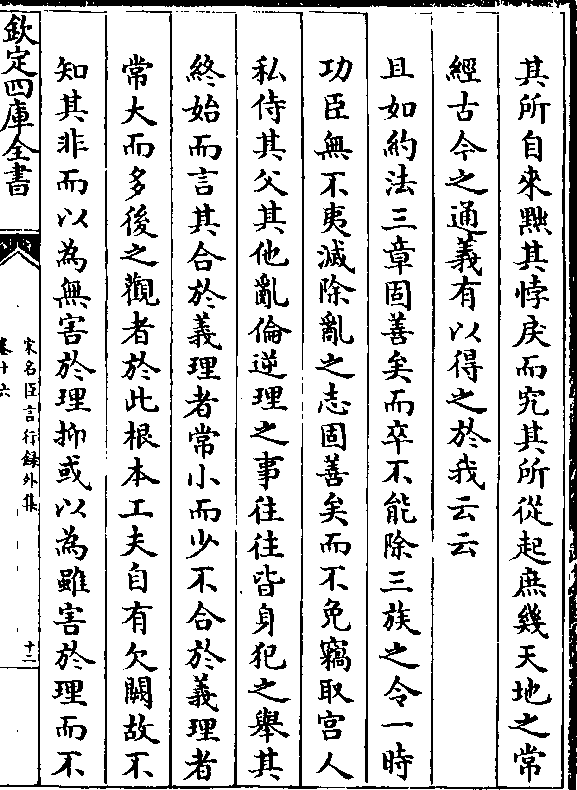 其所自來黜其悖戾而究其所從起庶幾天地之常
經古今之通義有以得之於我云云
且如約法三章固善矣而卒不能除三族之令一時
功臣無不夷滅除亂之志固善矣而不免竊取宮人
私侍其父其他亂倫逆理之事往往皆身犯之舉其
終始而言其合於義理者常小而少不合於義理者
常大而多後之觀者於此根本工夫自有欠闕故不
知其非而以為無害於理抑或以為雖害於理而不
欽定四庫全書
宋名臣言行録外集
卷十六
十二